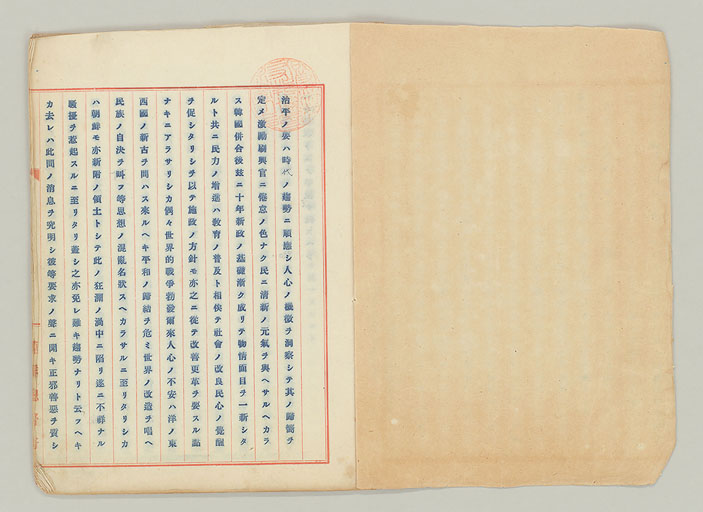 治平ノ要ハ時代ノ趨勢ニ順應シ人心ノ機微ヲ洞察シテ其ノ歸嚮ヲ
定メ激勵刷興官ニ倦怠ノ色ナク民ニ清新ノ元氣ヲ興ヘサルヘカラ
ス韓國併合後玆ニ十年新政ノ基礎漸ク成リテ物情面目ヲ一新シタ
ルト共ニ民力ノ增進ハ敎育ノ普及ト相俟テ社會ノ改良民心ノ覺醒
ヲ促シタリシヲ以テ施政ノ方針モ亦之ニ從テ改善更革ヲ要スル點
ナキニアラサリシカ偶々世界的戰爭勃發爾來人心ノ不安ハ洋ノ東
西國ノ新古ヲ問ハス來ルヘキ平和ノ歸結ヲ危ミ世界ノ改造ヲ唱ヘ
民族ノ自決ヲ叫フ等思想ノ混亂名狀スヘカラサルニ至リタリシカ
ハ朝鮮モ亦新附ノ領土トシテ此ノ狂瀾ノ渦中ニ陷リ遂ニ不祥ナル
騷擾ヲ惹起スルニ至リタリ蓋シ之亦免レ難キ趨勢ナリト云フヘキ
カ去レハ此間ノ消息ヲ究明シ彼等要求ノ聲ニ聞キ正邪善惡ヲ質シ